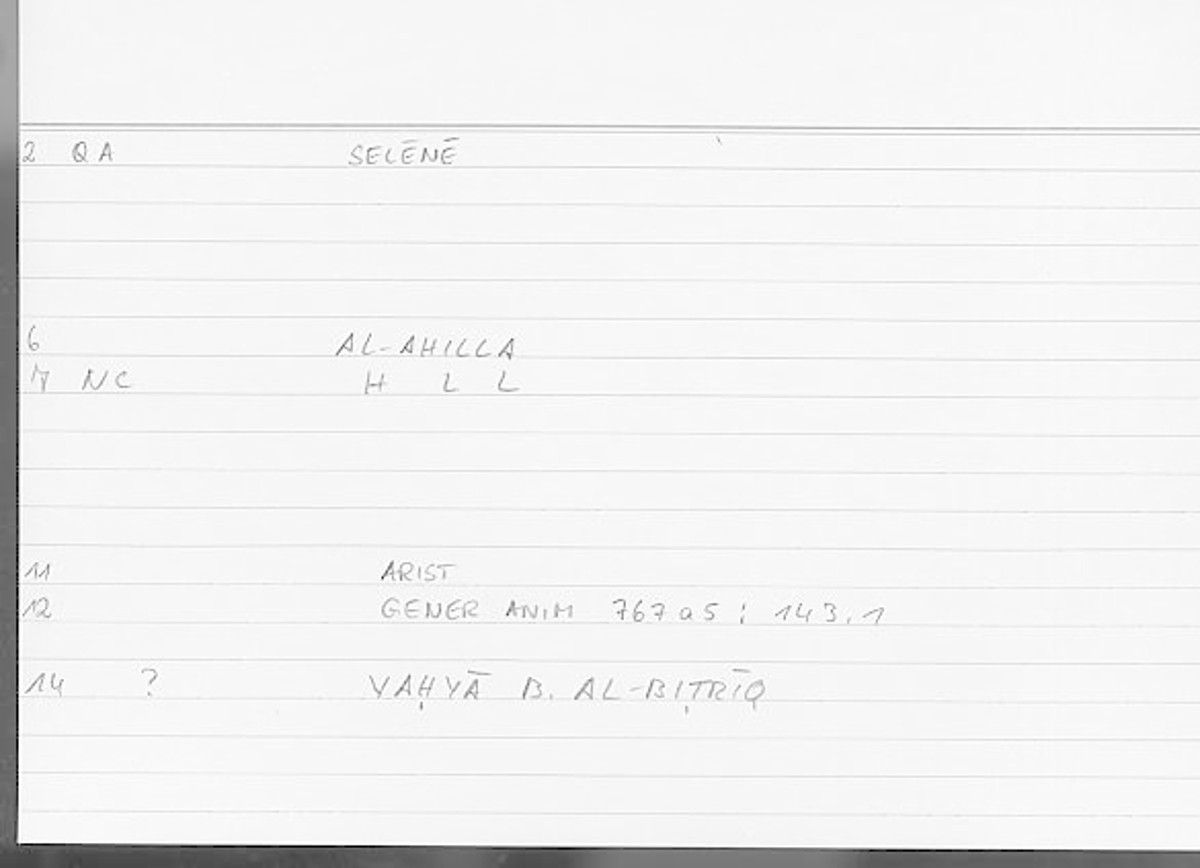 2 QA SELĒNĒ
6 AL-AHILLA
7 NC H L L
11 ARIST
12 GENER ANIM 767 a 5 ; 143.1
14 ? YAḤYĀ B. AL-BIṬRĪQ